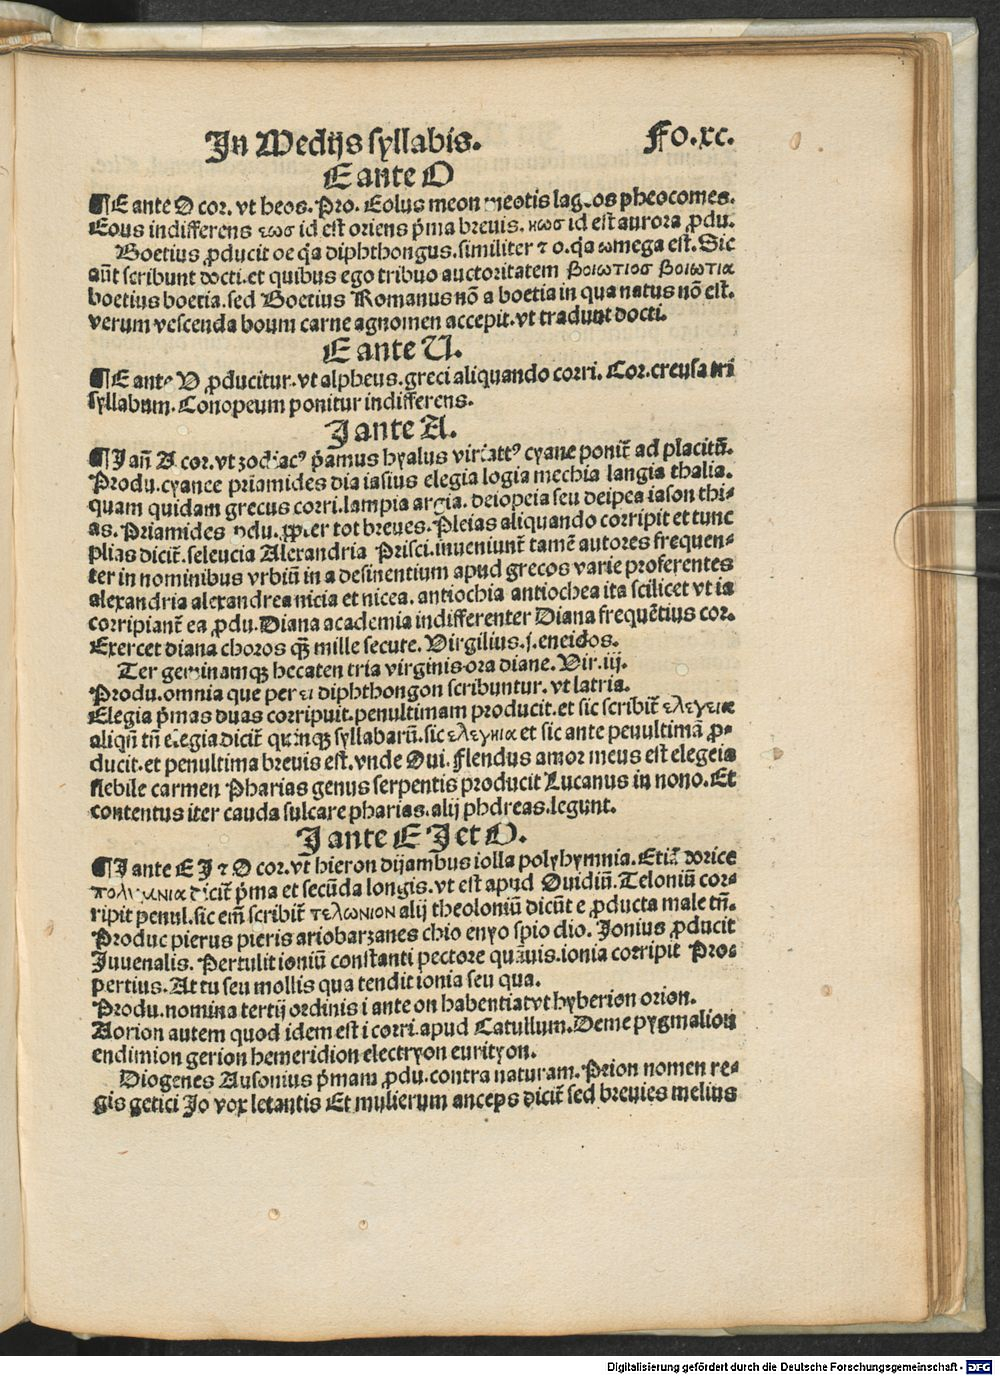 In Medijs syllabis. Fo.xc.
E ante O
¶E ante O cor. vt heos. Pro. Eolus meon meotis lagos pheocomes.
Eous indifferens εωσ id est oriens p̃ma breuis. ηωσ id est aurora ꝓdu.
Boetius ꝓducit oe q̃a diphthongus. similiter ⁊ o. q̃a ωmega est. Sic
aũt scribunt docti. et quibus ego tribuo auctoritatem βοιωτιοσ βοιωτια
boetius boetia. sed Boetius Romanus nõ a boetia in qua natus nõ est.
verum vescenda boum carne agnomen accepit. vt tradunt docti.
E ante U.
¶E ante V ꝓducitur. vt alpheus. greci aliquando corri. Cor. creusa tri
syllabum. Conopeum ponitur indifferens.
I ante A.
¶I añ A cor. vt zodiacꝰ p̃amus hyalus cyane ponit̃ ad placitũ.
Produ. cyanee priamides dia iasius elegia logia mechia langia thalia.
quam quidam grecus corri. lampia argia. deiopeia seu deipea iason thi⸗
as. Priamides ꝓdu. ꝓpter tot breues. Pleias aliquando corripit et tunc
plias dicit̃. seleucia Alexandria Prisci. inueniunt̃ tamẽ autores frequen⸗
ter in nominibus vrbiũ in a desinentium apud grecos varie proferentes
alexandria alexandrea nicia et nicea. antiochia antiochea ita scilicet vt ia
corripiant̃ ea ꝓdu. Diana academia indifferenter Diana frequẽtius cor.
Exercet diana choros qͣ̃ mille secute. Virgilius. j. eneidos.
Ter geminamqꝫ hecaten tria virginis ora diane. Vir. iij.
Produ. omnia que per ει diphthongon scribuntur. vt latria.
Elegia p̃mas duas corripuit. penultimam producit. et sic scribit̃ ελεγεια
aliqñ tñ elegia dicit̃ quinqꝫ syllabarũ. sic ελεγηια et sic ante penultimã ꝓ⸗
ducit. et penultima breuis est. vnde Oui. flendus amor meus est elegeia
flebile carmen Pharias genus serpentis producit Lucanus in nono. Et
contentus iter cauda sulcare pharias. alij phdreas. legunt.
I ante E I et O.
¶I ante E I ⁊ O cor. vt hieron dijambus iolla polyhymnia. Etiã dorice
πολυμνια dicit̃ p̃ma et secũda longis. vt est apud Ouidiũ. Teloniũ cor⸗
ripit penul. sic em̃ scribit̃ τελωνιον alij theoloniũ dicũt e ꝓducta male tñ.
Produc pierus pieris ariobarzanes chio enyo spio dio. Ionius ꝓducit
Iuuenalis. Pertulit ioniũ constanti pectore quãuis. ionia corripit Pro⸗
pertius. At tu seu mollis qua tendit ionia seu qua.
Produ. nomina tertij ordinis i ante on habentia vt hyberion orion.
Aorion autem quod idem est i corri. apud Catullum. Deme pygmalion
endimion gerion hemeridion electryon eurityon.
Diogenes Ausonius p̃mam ꝓdu. contra naturam. Prion nomen re⸗
gis getici Io vox letantis Et mulierum anceps dicit̃ sed breuies melius
Digitalisierung gefördert durch die Deutsche Forschungsgemeinschaft - DFG